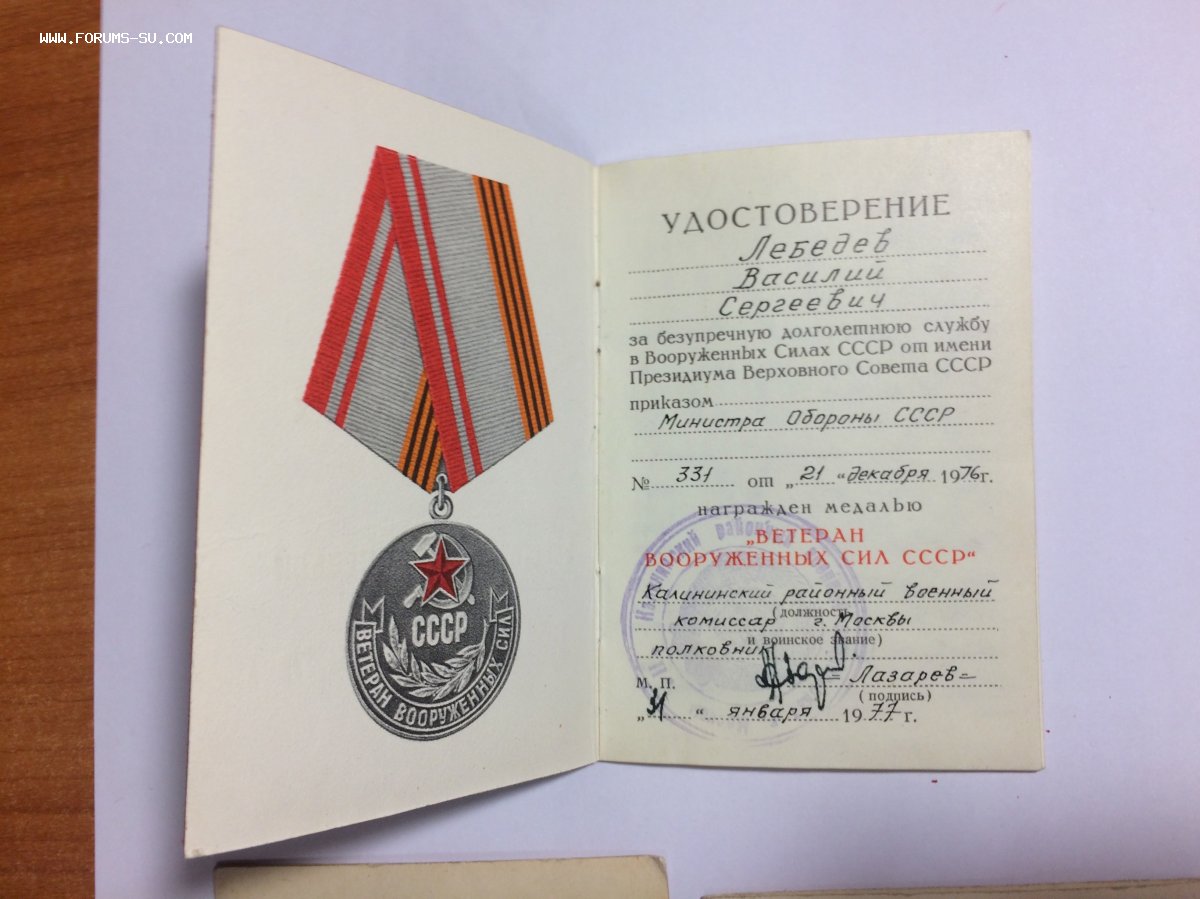 WWW.FORUMS-SU.COM
СССР
ВЕТЕРАН ВООРУЖЕННЫХ СИЛ
УДОСТОВЕРЕНИЕ
Лебедев
Василий
Сергеевич
за безупречную долголетнюю службу
в Вооруженных Силах СССР от имени
Президиума Верховного Совета СССР
приказом
Министра Обороны СССР
№ 331 от „21 “ декабря 1976 г.
награжден медалью
„ВЕТЕРАН
ВООРУЖЕННЫХ СИЛ СССР“
Калининский районный военный
(должность
комиссар г. Москвы
и воинское звание)
полковник
М. П. =Лазарев=
(подпись)
„31 “ января 1977 г.